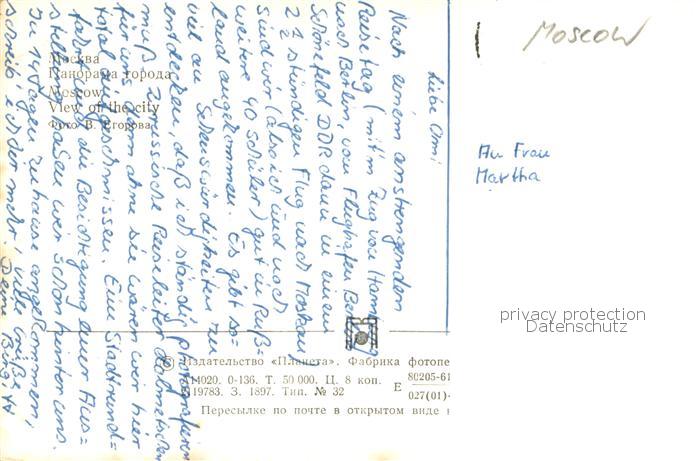 Moscow
Москва
Панорама города
Moscow
View of the city
Фото В. Егорова
Liebe Omi
Nach einem anstrengenden
Reisetag (mit'm Zug von Hann
nach Berlin, von Flughafen Be
Schönefeld DDR dann in einem
2 1/2 stündigen Flug nach Moskau
sind wir (also ich und noch
weitere 40 Schüler) gut in Ruß=
land angekommen. Es gibt so=
viel an Sehenswürdigkeiten zu
entdecken, daß ich ständig fotografieren
muß. 2 russische Reiseleiter dolmetschen
für uns, denn ohne sie wären wir hier
total aufgeschmissen. Eine Stadtrund=
fahrt und die Besichtigung einer Aus=
stellung haben wir schon hinter uns.
In 14 Tagen zuhause angekommen,
schreib ich dir mehr, viele Grüße
Deine
An Frau
Martha
privacy protection
Datenschutz
© Издательство «Планета». Фабрика фотопе
А14020. 0-136. Т. 50 000. Ц. 8 коп.
19783. З. 1897. Тип. № 32
Е 80205-61
027(01)-
Пересылке по почте в открытом виде н